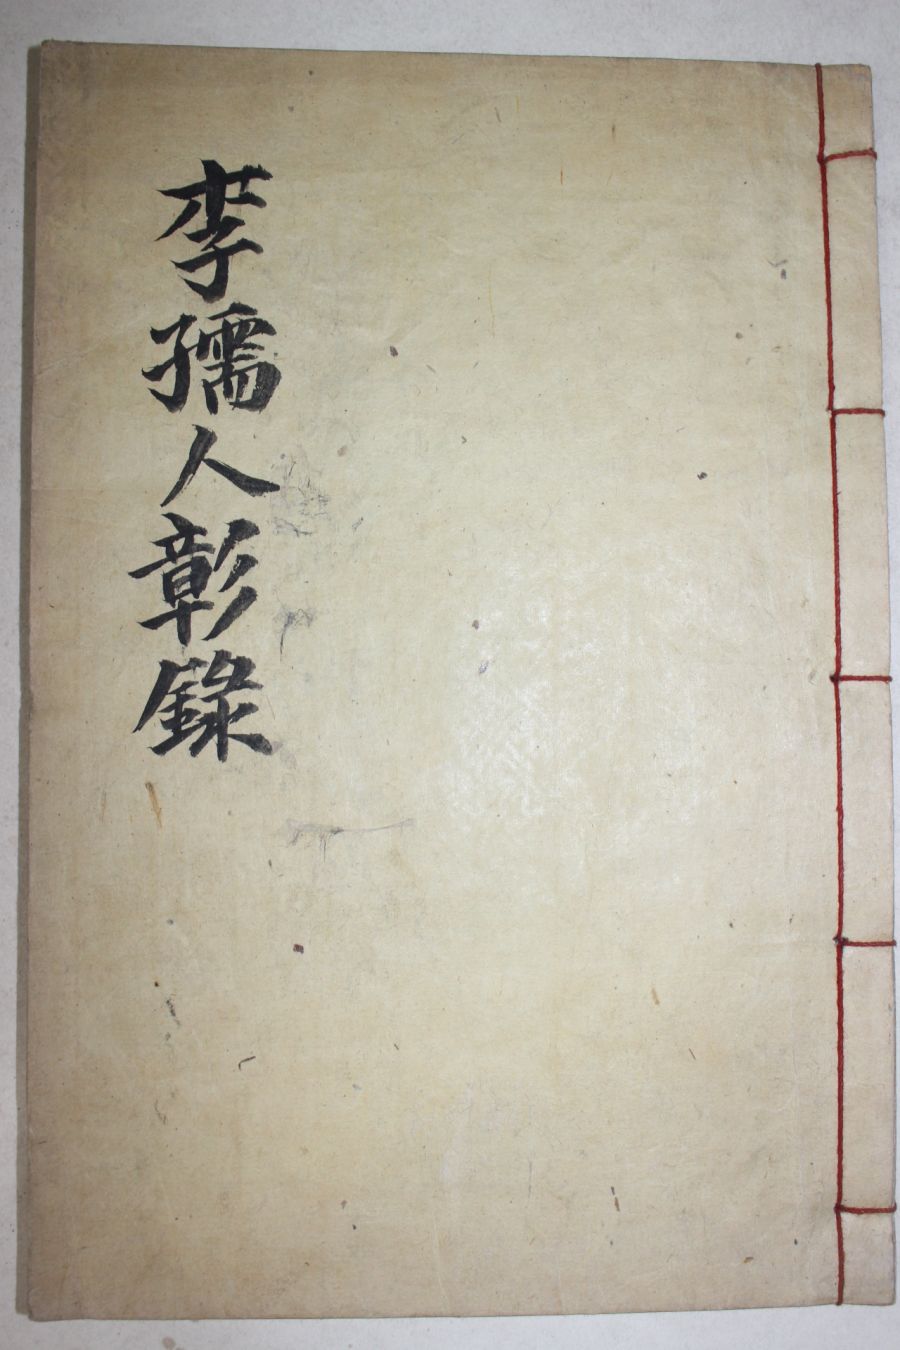 李孺人彰錄